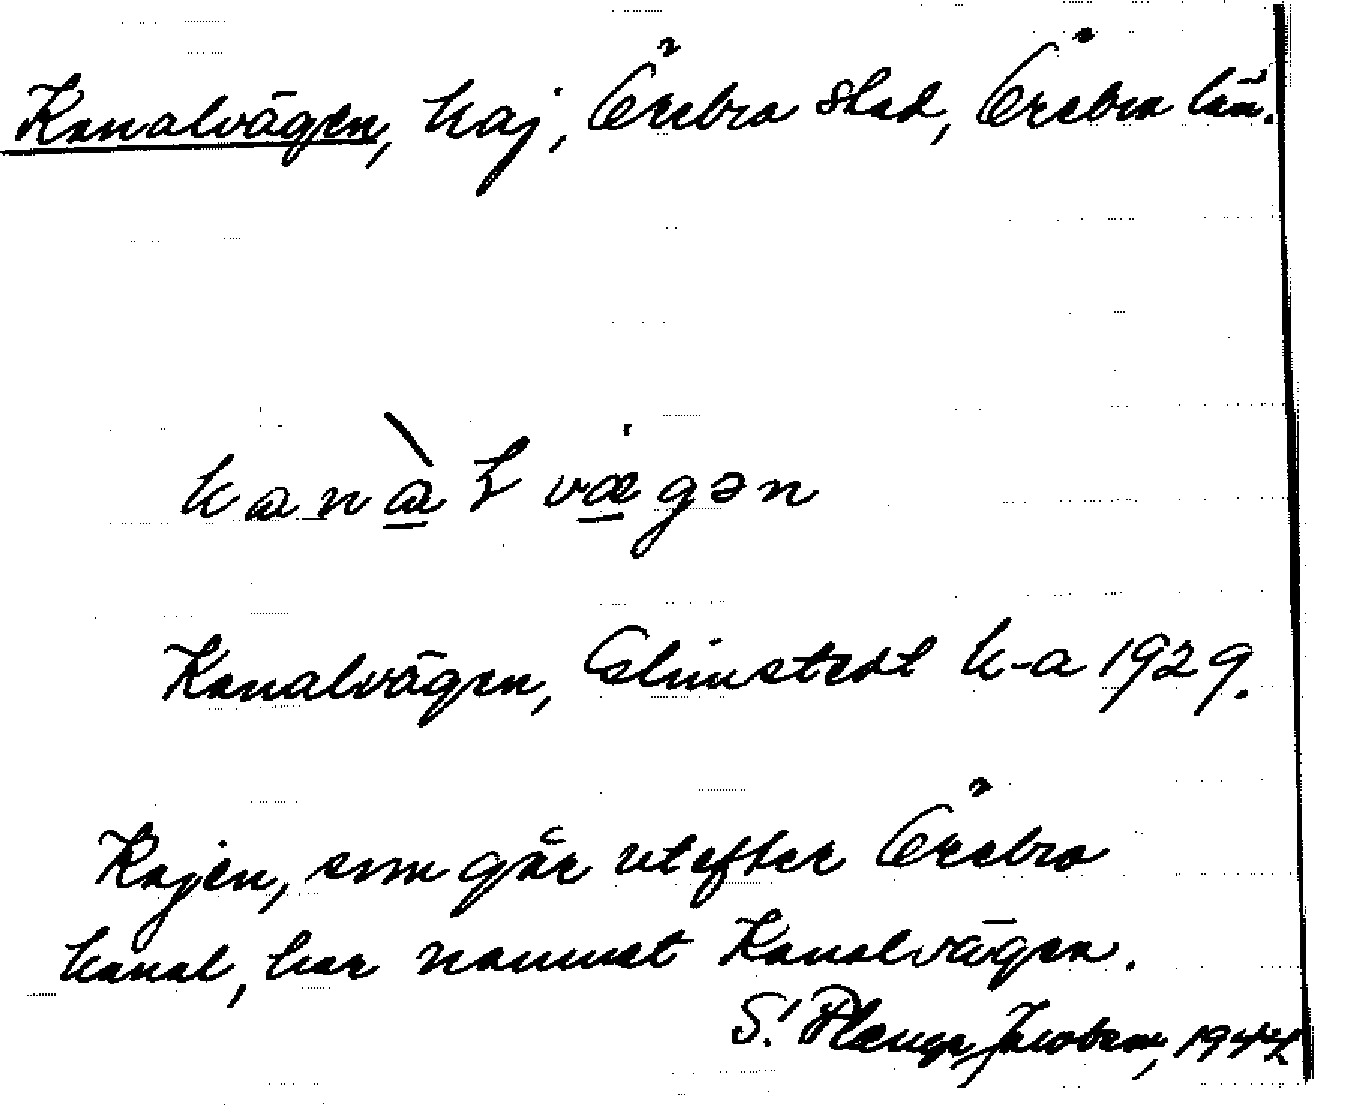 Kanalvägen, kaj, Örebro stad, Örebro län.
kanàl vægən
Kanalvägen, Elmstedt k-a 1929.
Kajen, som går utefter Örebro
kanal, har namnet Kanalvägen.
S! 1944